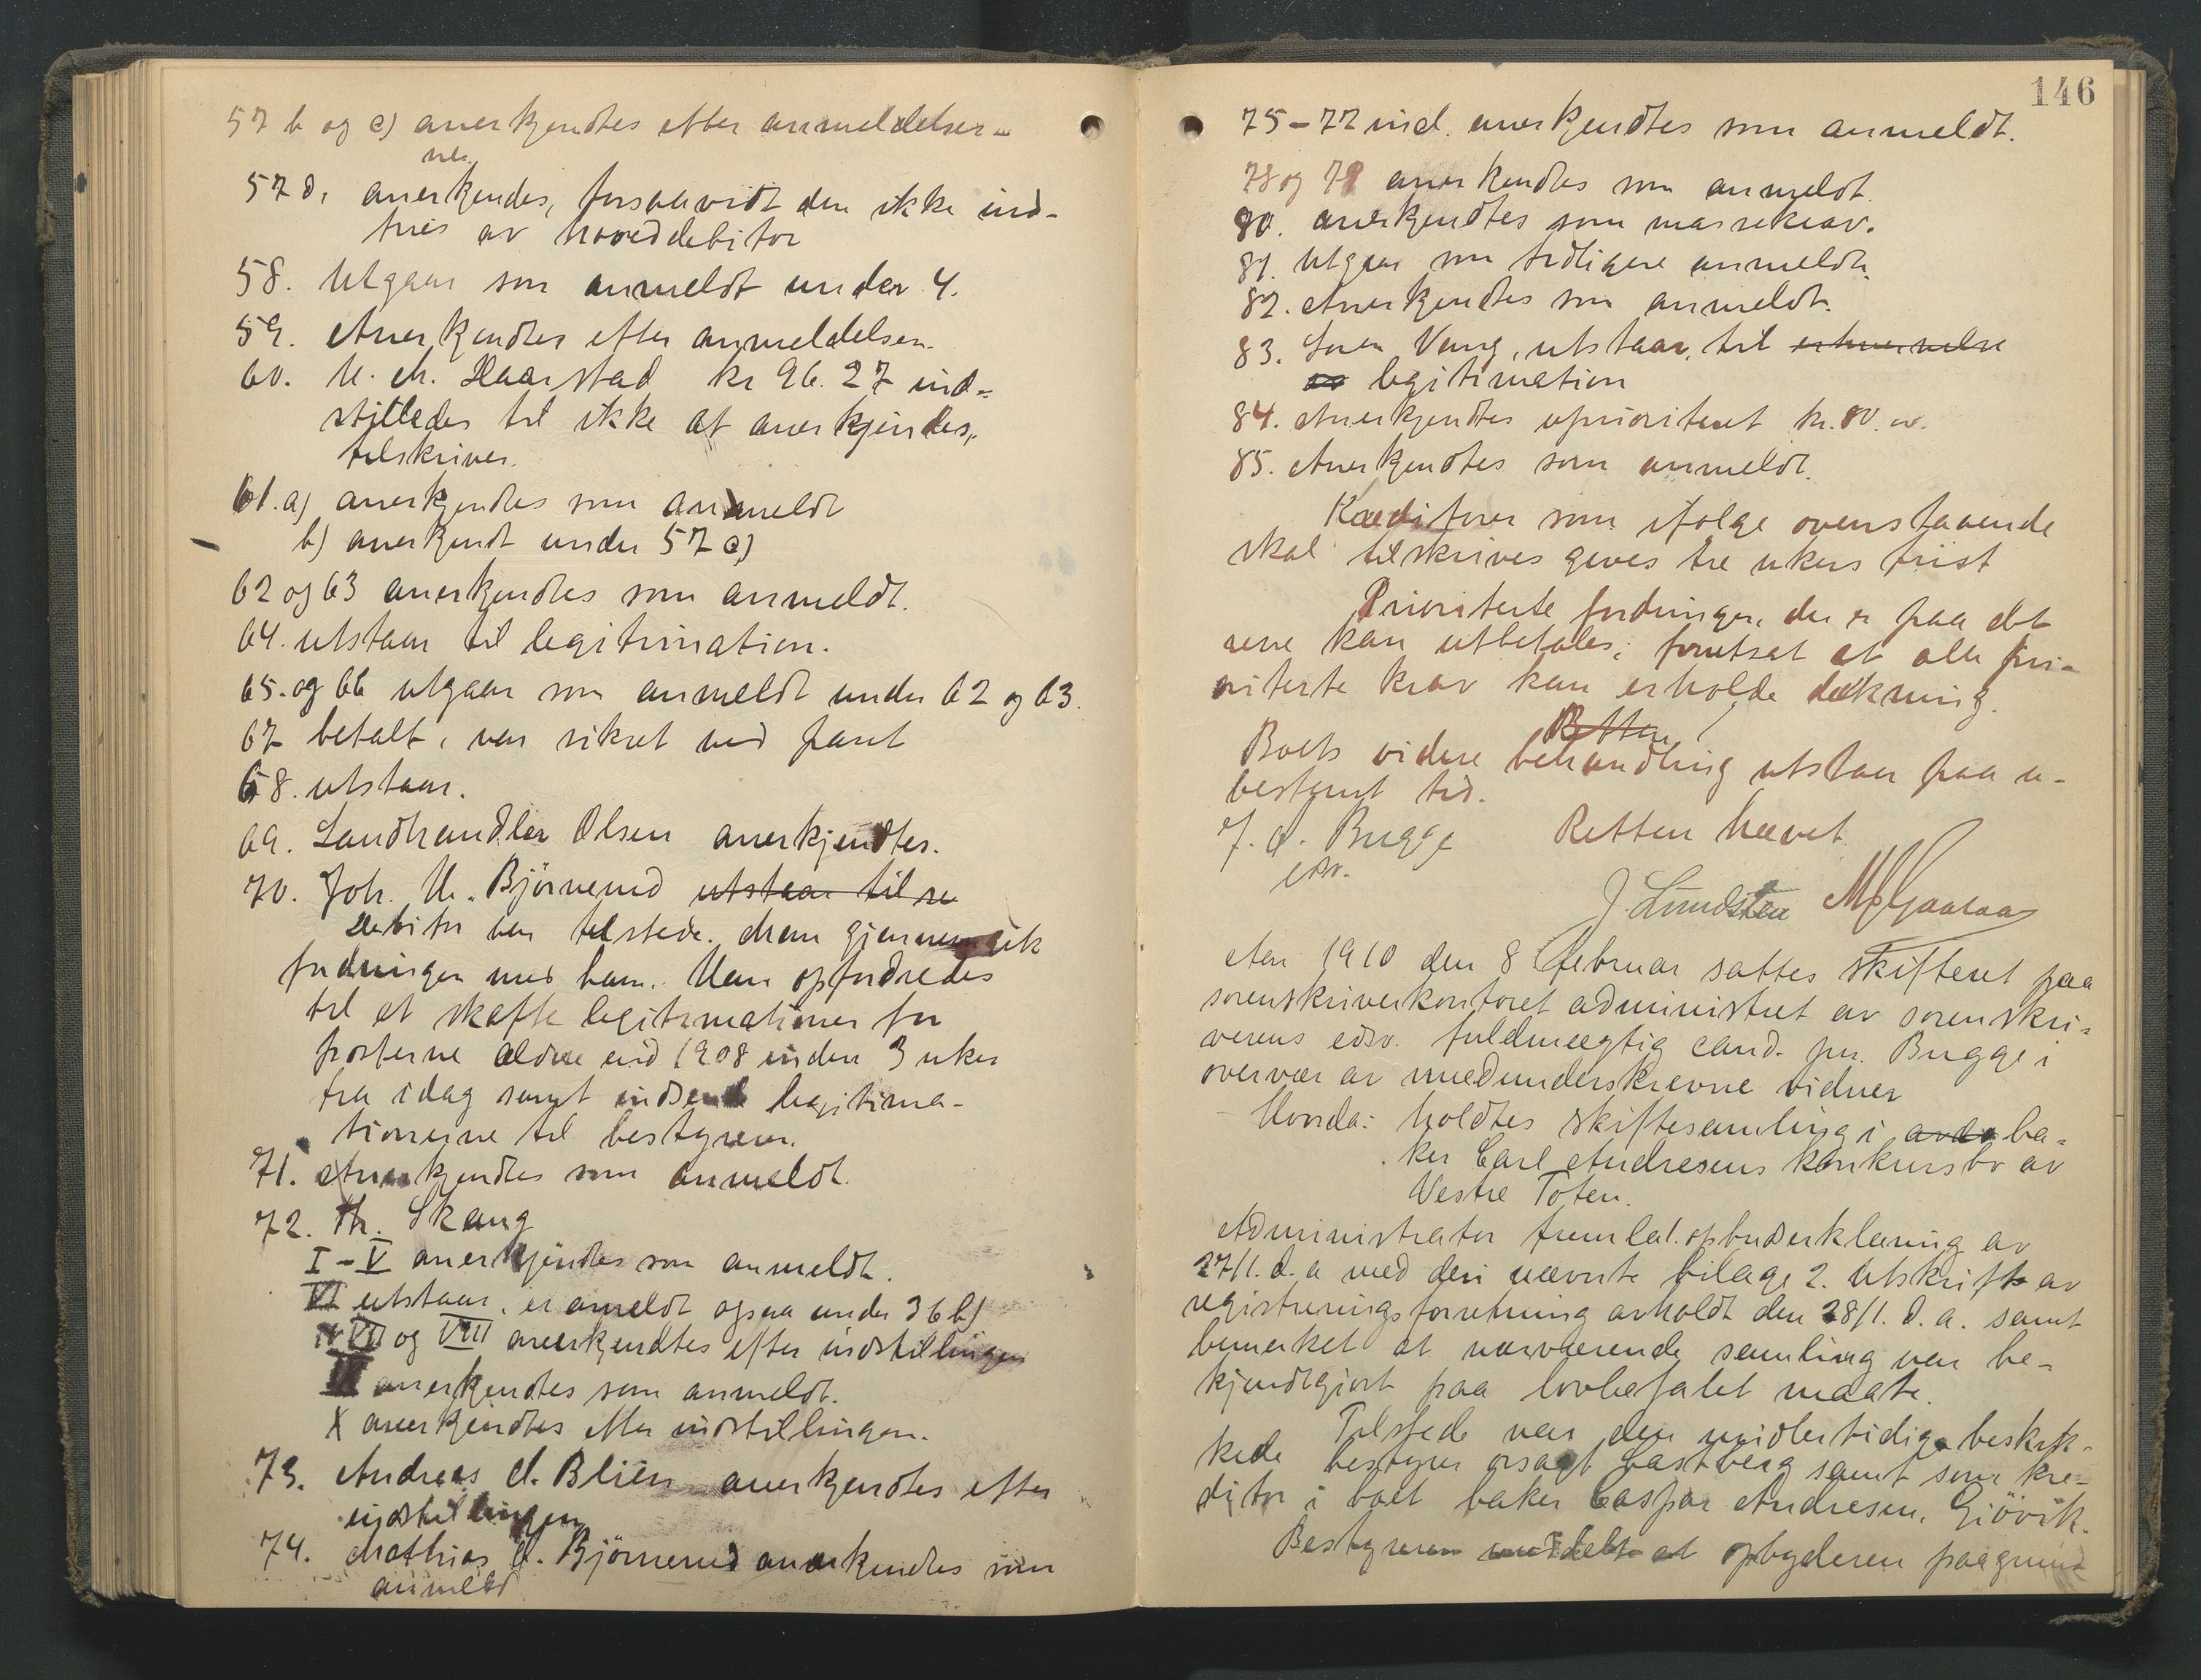 57 b og c) anerkjendtes efter anmeldelser-
ne.
57 d, anerkjendes, forsaavidt den ikke ind-
fries av hoveddebitor
58. Utgaar som anmeldt under 4.
59. Anerkjendtes efter anmeldelsen.
60. M. Haarstad kr 96.27 ind-
stilledes til ikke at anerkjendes,
tilskrives.
61. a) anerkjendtes som anmeldt
b) anerkjendt under 57 c)
62 og 63 anerkjendtes som anmeldt.
64. utstaar til legitimation.
65. og 66 utgaar som anmeldt under 62 og 63.
67 betalt, var sikret ved pant
68. utstaar.
69. Landhandler Olsen anerkjendtes.
70. Joh. M. Björnerud utstaar til se
Debitor var tilstede. Man gjennemgik
fordringen med ham. Han opfordredes
til at skaffe legitimationer for
posterne ældre end 1908 inden 3 uker
fra idag samt indsende legitima-
tionerne til bestyreren.
71. Anerkjendtes som anmeldt.
72. Th. Skaug
I-V anerkjendtes som anmeldt.
VI utstaar, er anmeldt ogsaa under 36 b)
VII og VIII anerkjendtes efter indstillingen
IX anerkjendtes som anmeldt.
X anerkjendtes efter indstillingen.
73. Andreas A. Blien anerkjendtes efter
indstillingen
74. Mathias Björnerud anerkjendtes som
anmeldt
146
75-77 incl. anerkjendtes som anmeldt.
78 og 79 anerkjendtes som anmeldt.
80. anerkjendtes som massekrav.
81. Utgaar som tidligere anmeldt.
82. Anerkjendtes som anmeldt.
83. Vang, utstaar, til erhvervelse
av legitimation
84. Anerkjendtes uprioritert kr. 80.00.
85. Anerkjendtes som anmeldt.
Kreditorer som ifølge ovenstaaende
skal tilskrives gives tre ukers frist
Prioriterte fordringer, der er paa det
rene kan utbetales, forutsat at alle pri-
oriterte krav kan erholde dækning.
Retten
Boets videre behandling utstaar paa u-
bestemt tid.
Retten hævet.
J. A. Bugge
edsv.
J. Lundsten M Gaaraas
Aar 1910 den 8 februar sattes skifteret paa
sorenskriverkontoret administrert av sorenskri-
verens edsv. fuldmægtig cand. jur. Bugge i
overvær av medunderskrevne vidner
Hvorda: holdtes skiftesamling i ba-
ker Carl Andresens konkursbo av
Vestre Toten.
Administrator fremla1. opbudserklæring av
27/1. d. a med deri nævnte bilage 2. Utskrift av
registreringsforretning avholdt den 28/1. d. a. samt
bemerket at nærværende samling var be-
kjendtgjort paa lovbefalet maate.
Tilstede var den midlertidige beskik-
kede bestyrer o.r.sagf. Castberg samt som kre-
ditor i boet baker Caspar Andresen, Gjövik.
Bestyreren meddelte at opbyderen paagrund